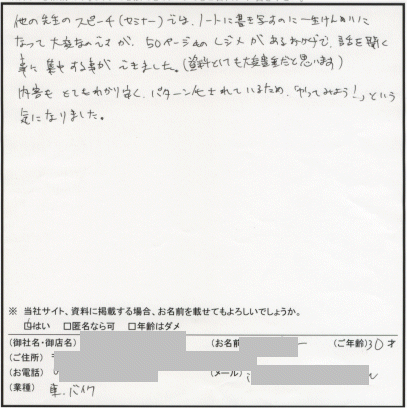 他の先生のスピーチ(セミナー)では、ノートに書き写すのに一生けんめいに
なって大変なのですが、50ページのレジメがあるおかげで、話を聞く
事に集中する事ができました。(資料としても大変貴重だと思います)
内容もとてもわかり安く、パターン化されているため、「やってみよう!」という
気になりました。
※ 当社サイト、資料に掲載する場合、お名前を載せてもよろしいでしょうか。
☑はい □匿名なら可 □年齢はダメ
(御社名・御店名) (お名前 (ご年齢)30才
(ご住所)
(お電話) (メール)
(業種) 車、バイク